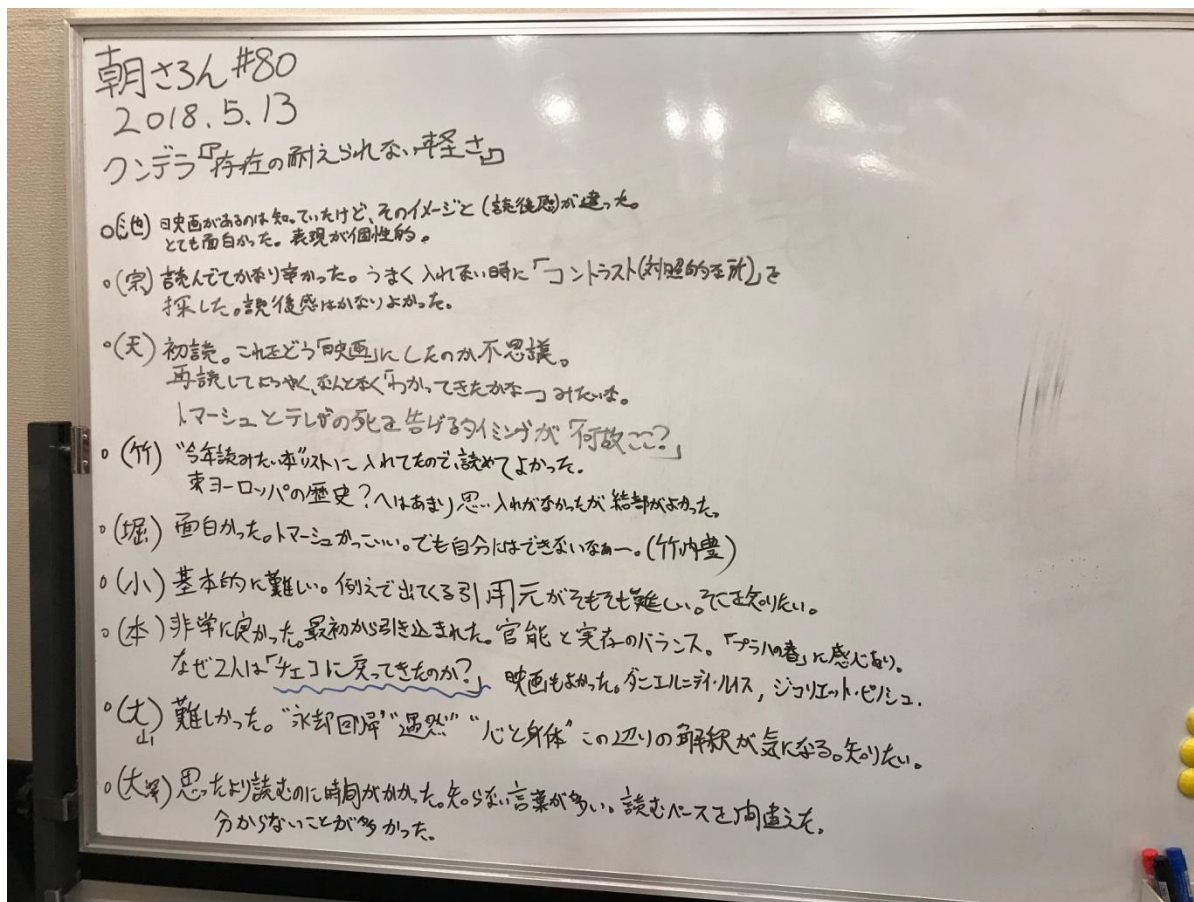 朝さろん #80
2018.5.13
クンデラ『存在の耐えられない軽さ』
○(池) 映画があるのは知っていたけど、そのイメージと(読後感)が違った。
とても面白かった。表現が個性的。
○(宗) 読んでてかなり辛かった。うまく入れない時に「コントラスト(対照的な所)」を
探した。読後感はかなりよかった。
○(天) 初読。これをどう「映画」にしたのか不思議。
再読してようやく、なんとなく「わかってきたかなー」みたいな。
トマーシュとテレザの死を告げるタイミングが「何故ここ?」
○(竹) "今年読みたい本"リストに入れてたので、読めてよかった。
東ヨーロッパの歴史?へはあまり思い入れがなかったが結部がよかった。
○(堀) 面白かった。トマーシュかっこいい。でも自分にはできないなぁー。(竹内豊)
○(小) 基本的に難しい。例えで出てくる引用元がそもそも難しい。そこを知りたい。
○(本) 非常に良かった。最初から引き込まれた。官能と実存のバランス。「プラハの春」に感じ有り。
なぜ2人は「チェコに戻ってきたのか?」 映画もよかった。ダニエル=デイ・ルイス, ジュリエット・ビノシュ.
○(大山) 難しかった。"永却回帰" "偶然" "心と身体" この辺りの解釈が気になる。知りたい。
○(大澤) 思ったより読むのに時間がかかった。知らない言葉が多い。読むペースを間違えた。
分からないことが多かった。